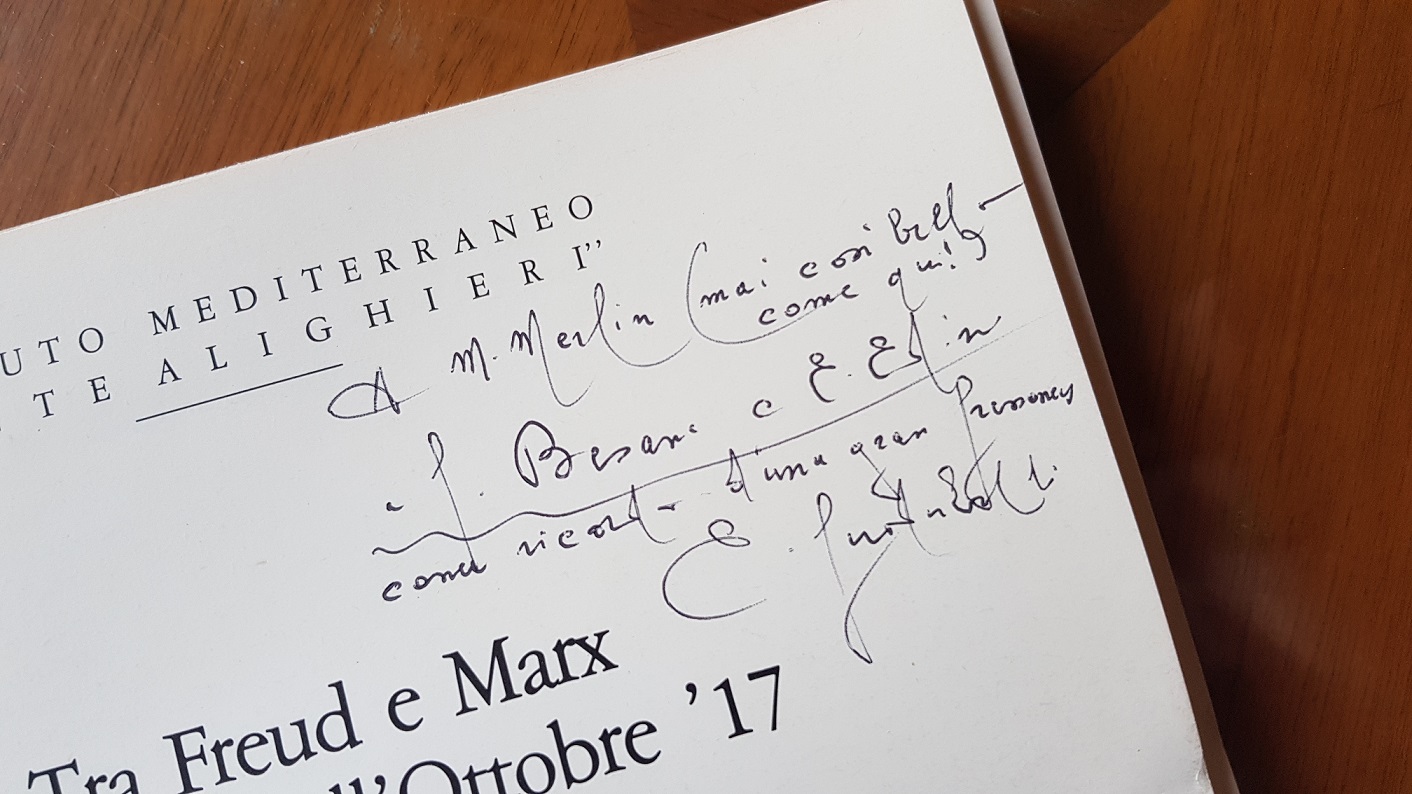 UTO MEDITERRANEO
TE ALIGHIERI”
A M. Merlin (mai così bello
come qui!)
a f. Besana e E. Edlin
come ricordo d'una gran
E.
Tra Freud e Marx
ll'Ottobre '17